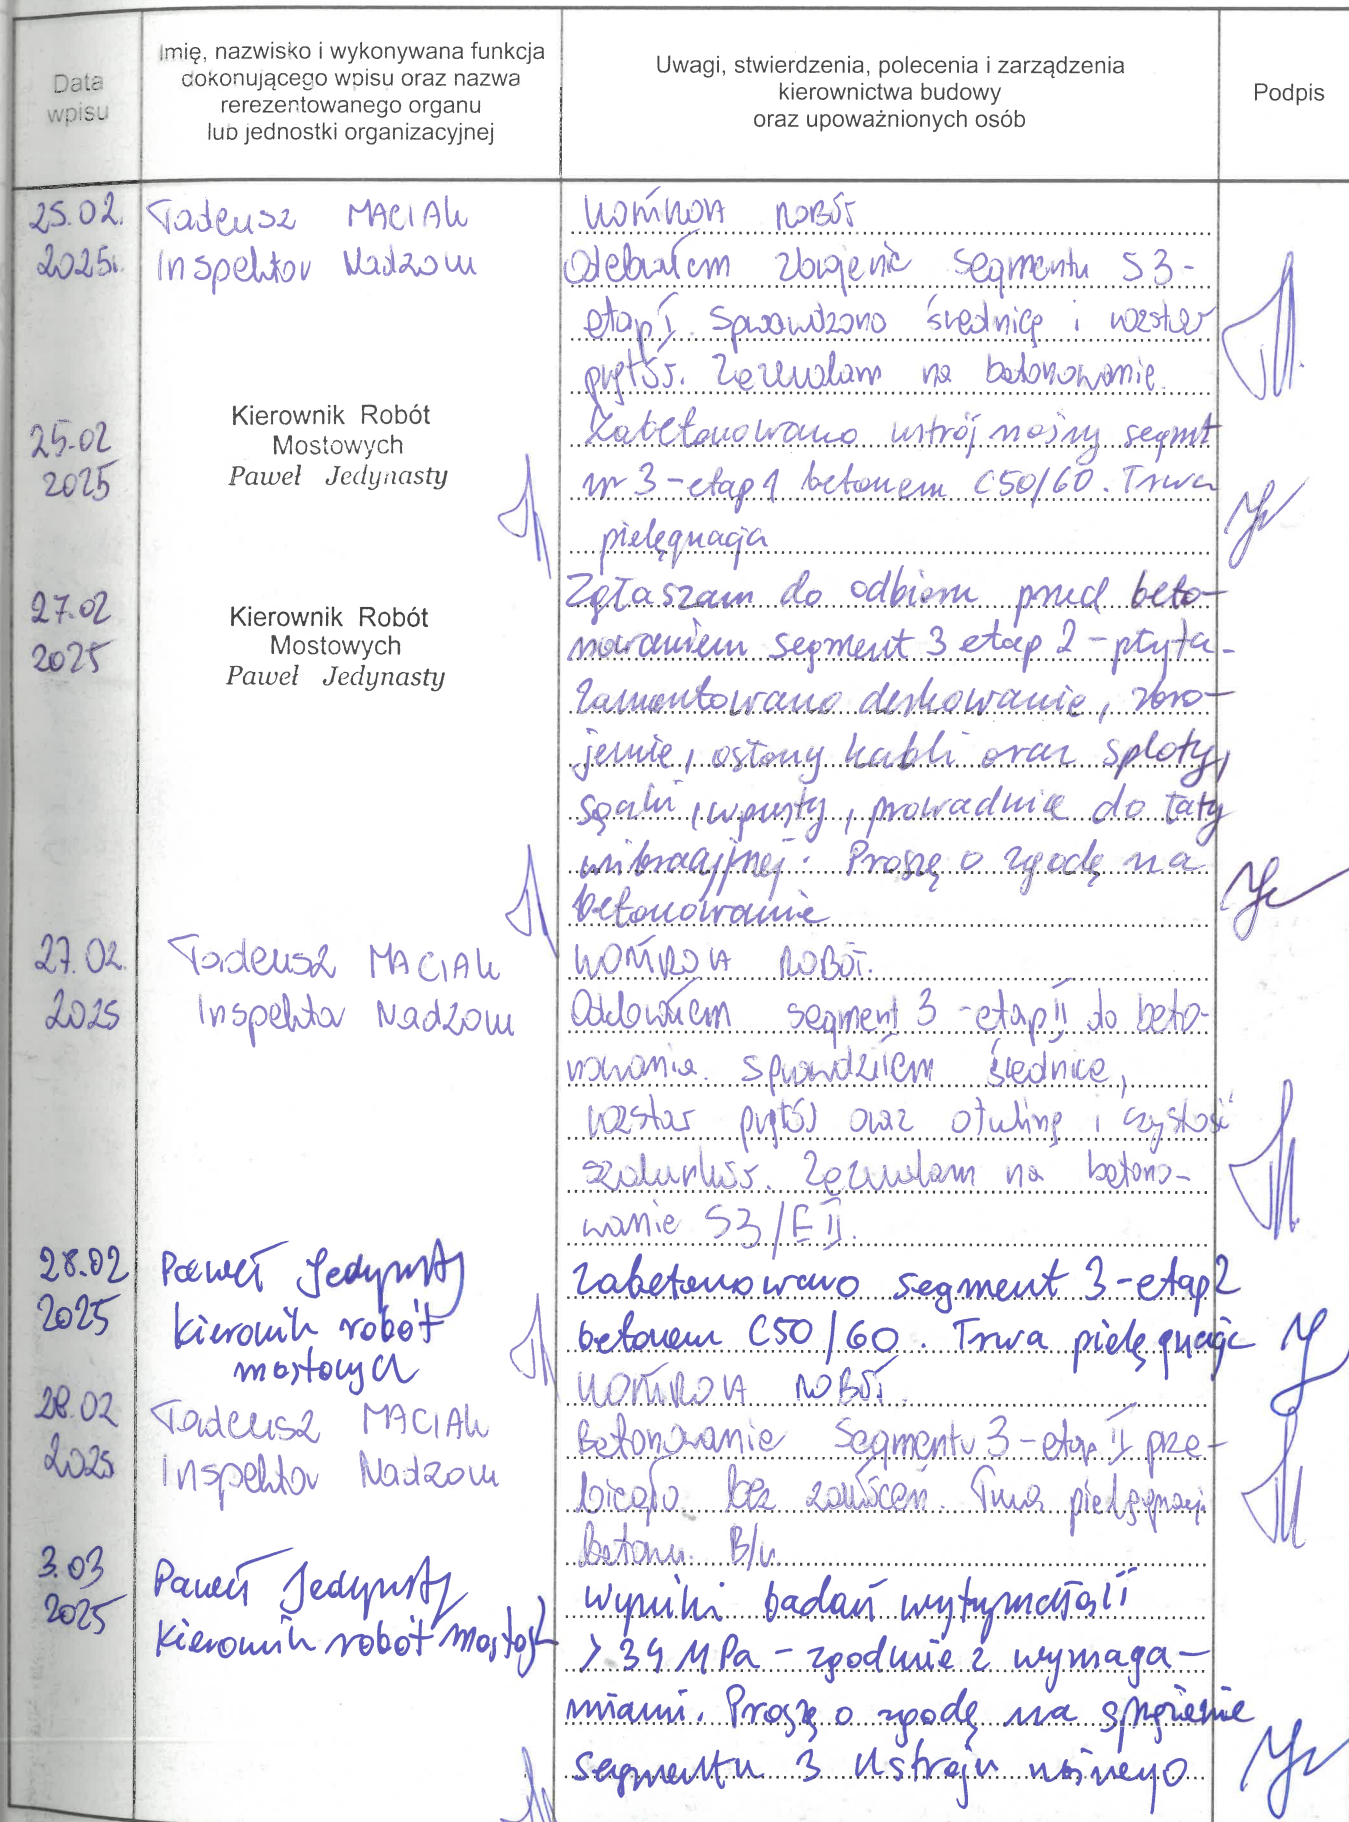 Data
wpisu
Imię, nazwisko i wykonywana funkcja
dokonującego wpisu oraz nazwa
rerezentowanego organu
lub jednostki organizacyjnej
Uwagi, stwierdzenia, polecenia i zarządzenia
kierownictwa budowy
oraz upoważnionych osób
Podpis
25.02.
2025r.
Tadeusz MACIAK
Inspektor Nadzoru
KONTROLA ROBÓT
Odebrałem zbrojenie segmentu S3-
etap I. Sprawdzono średnicę i rozstaw
prętów. Zezwalam na betonowanie.
25.02
2025
Kierownik Robót
Mostowych
Paweł Jedynasty
Zabetonowano ustrój nośny segmt
nr 3-etap 1 betonem C50/60. Trwa
pielęgnacja
27.02
2025
Kierownik Robót
Mostowych
Paweł Jedynasty
Zgłaszam do odbioru przed beto-
nowaniem segment 3 etap 2 - płyta.
Zamontowano deskowanie, zbro-
jenie, osłony kabli oraz sploty,
sączki, wpusty, prowadnice do łaty
wibracyjnej. Proszę o zgodę na
betonowanie
27.02.
2025
Tadeusz MACIAK
Inspektor Nadzoru
KONTROLA ROBÓT.
segment 3 - etap II do beto-
nowania. Sprawdziłem średnicę,
rozstaw prętów oraz otulinę i czystość
szalunków. Zezwalam na betono-
wanie S3/E II.
28.02
2025
Paweł Jedynasty
kierownik robót
mostowych
Zabetonowano segment 3-etap 2
betonem C50/60. Trwa pielęgnacja
28.02
2025
Tadeusz MACIAK
Inspektor Nadzoru
KONTROLA ROBÓT.
Betonowanie segmentu 3-etap II prze-
biegało bez zakłóceń. Trwa pielęgnacja
betonu. B/u
3.03
2025
Paweł Jedynasty
kierownik robót mostowych
Wyniki badań wytrzymałości
> 34 MPa - zgodnie z wymaga-
niami. Proszę o zgodę na sprężenie
segmentu 3 ustroju nośnego